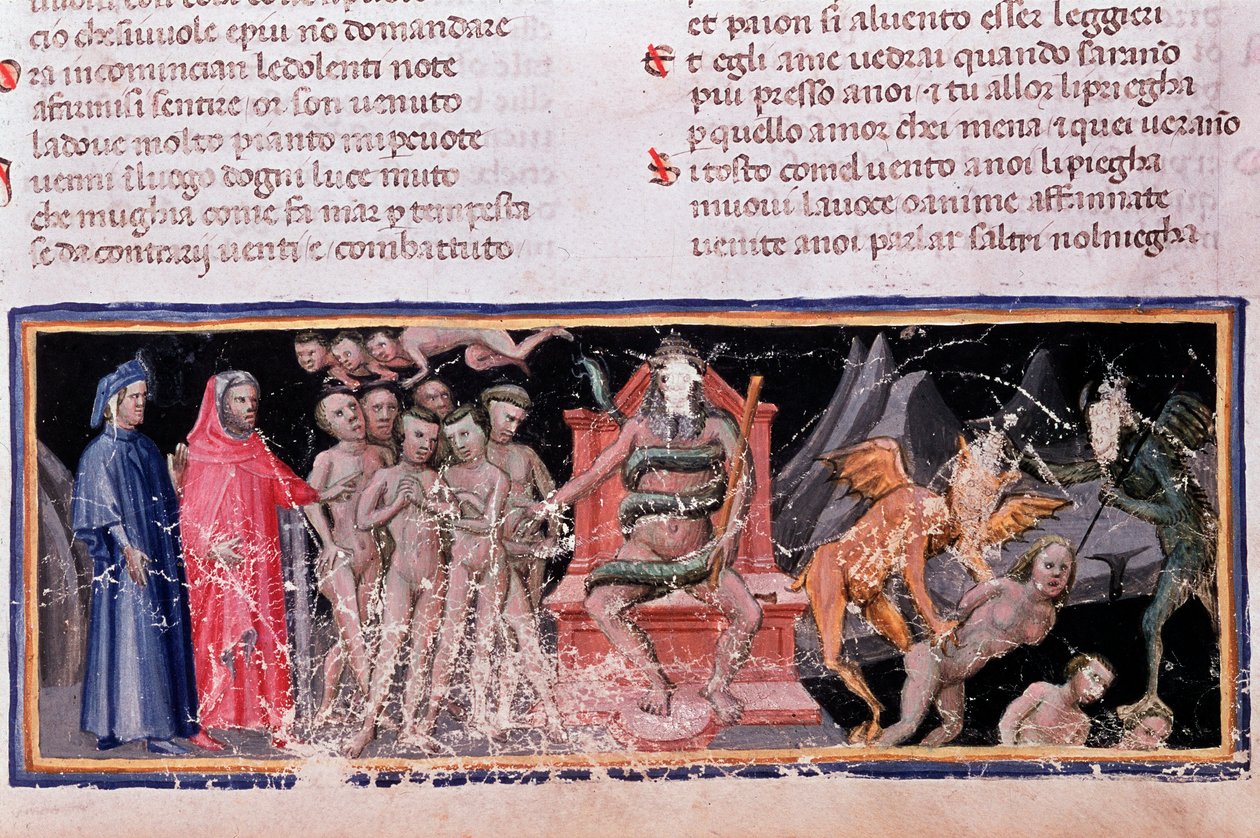 cio chesiuuole epiu nõ domandare
Ora incomincian ledolenti note
afarmisi sentire / or son uenuto
ladoue molto pianto mi ꝑcuote
I uenni ĩ luogo dogni luce muto
che mughia come fa mar ꝑ tempesta
se da contrarij uenti / e / combattuto /
et paion si aluento esser leggieri
Et egli ame uedrai quando sarãno
piu presso anoi / ⁊ tu allor lipriegha
ꝑ quello amor chei mena / ⁊ quei uerãno
Si tosto comeluento anoi lipiegha
muoui lauoce / o anime affannate
uenite anoi parlar saltri nolniegha